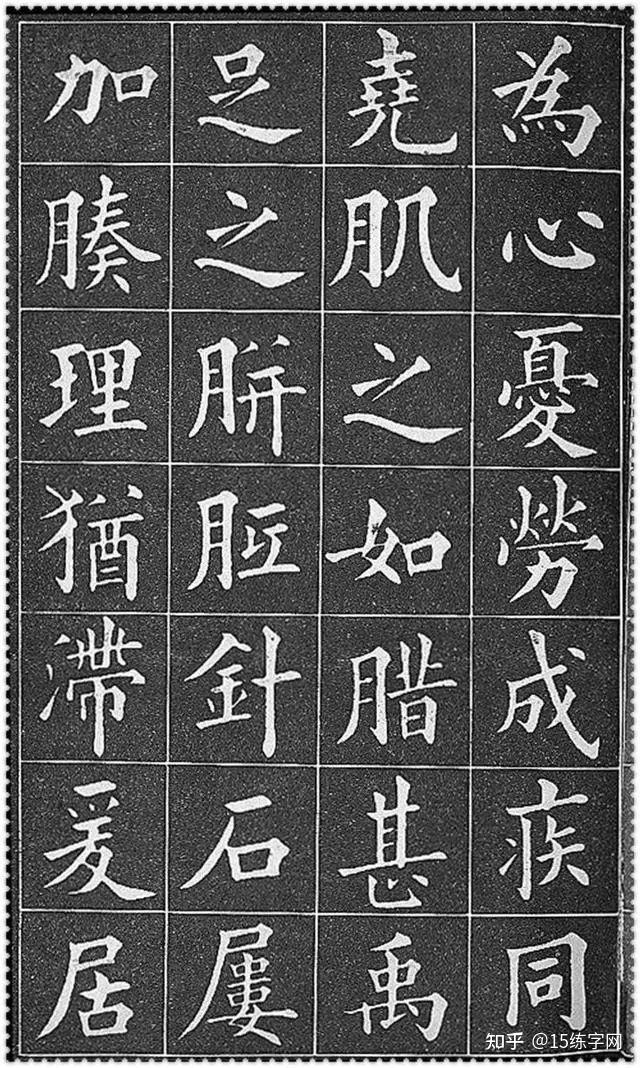 為心憂勞成疾同
堯肌之如腊甚禹
足之胼胝針石屢
加腠理猶滯爰居
知乎 @15练字网